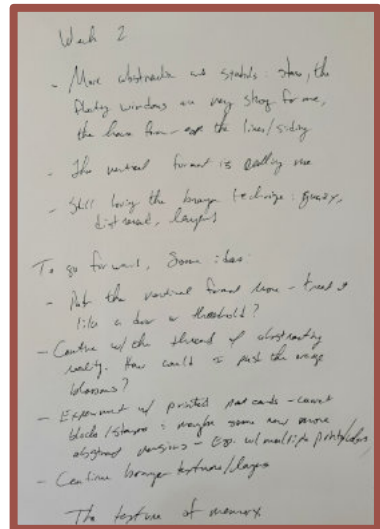 Week 2
- More abstraction and symbols: stars, the
floating windows are very strong for me,
the house form - or the lines/siding
- The vertical format is calling me
- Still loving the brayer technique: grainy,
distressed, layers
To go forward, Some ideas:
- the vertical format more - treat it
like a door or threshold?
- Continue w/ the thread of abstracting
reality. How could I push the
blossoms?
- Experiment w/ printed post cards - carved
blocks/stamps: maybe some new more
abstract versions - Esp. w/ multiple prints/colors
- Continue brayer texture/layers
The texture of memory